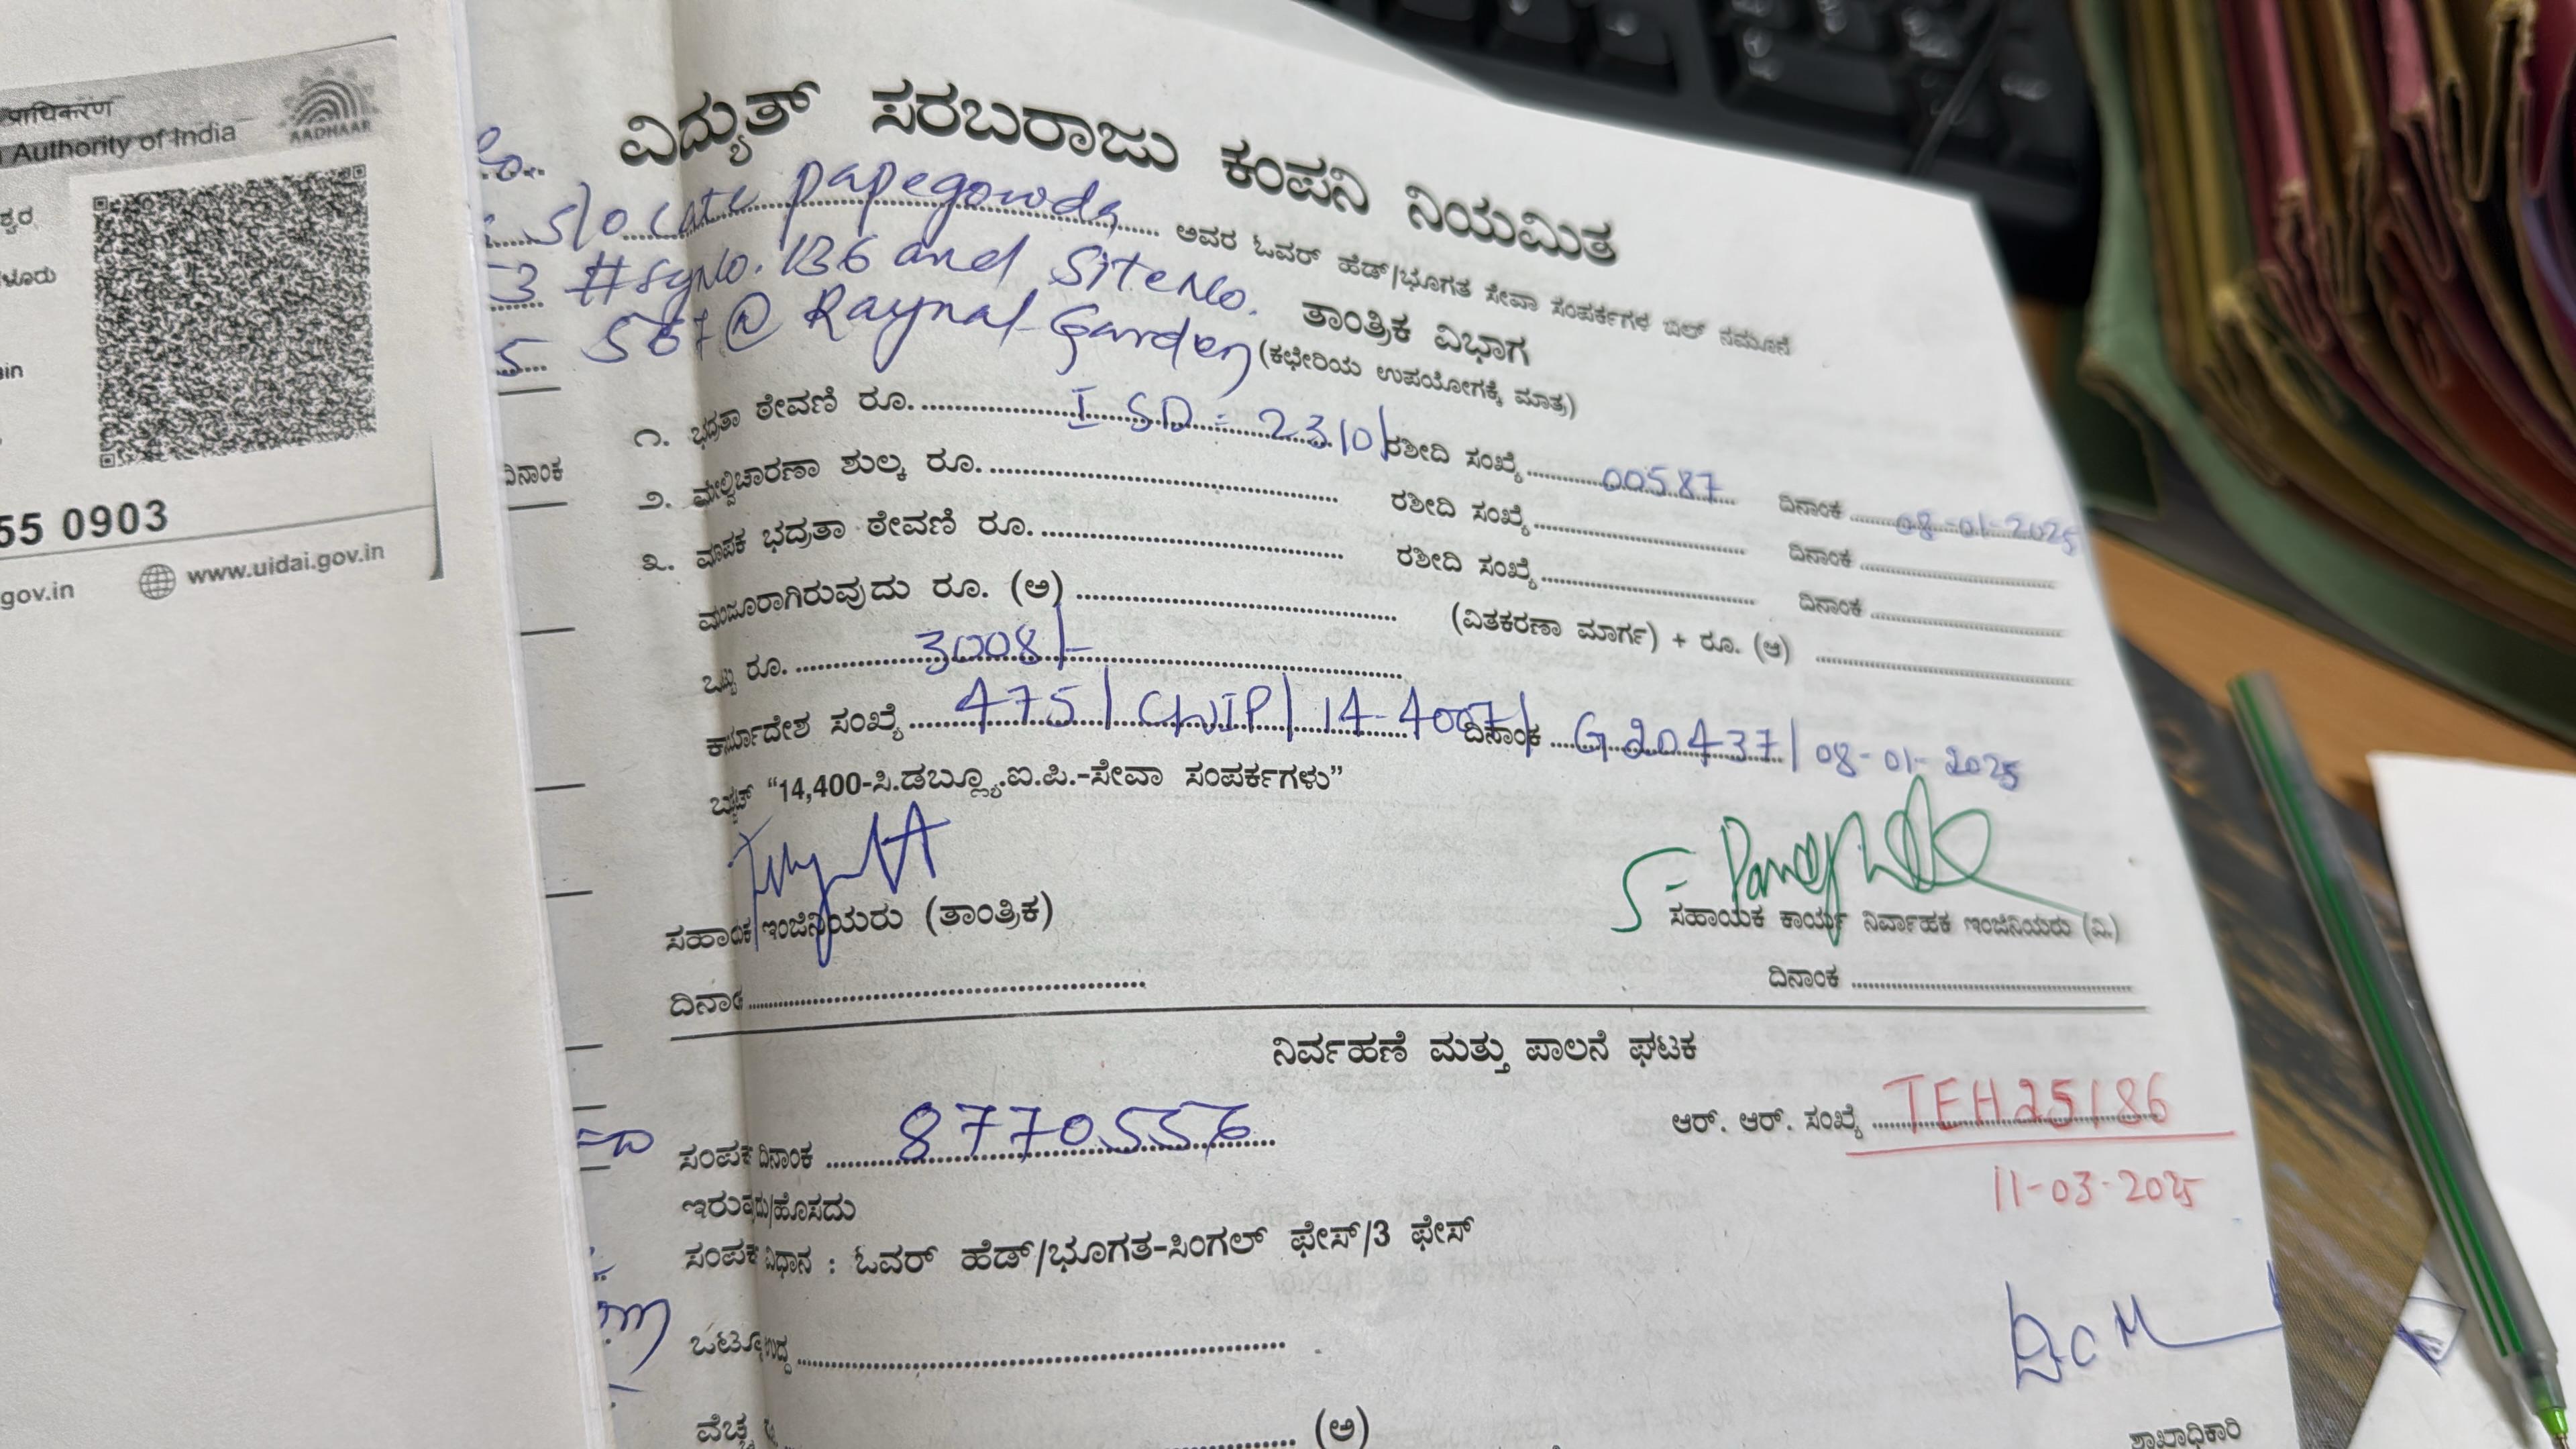 प्राधिकरण
Authority of India
AADHAAR
ಶ್ವರ
ಳೂರು
55 0903
gov.in www.uidai.gov.in
ವಿದ್ಯುತ್ ಸರಬರಾಜು ಕಂಪನಿ ನಿಯಮಿತ
S/o Late papegowda ಅವರ ಓವರ್ ಹೆಡ್/ಭೂಗತ ಸೇವಾ ಸಂಪರ್ಕಗಳ ಬಿಲ್ ನಮೂನೆ
3 #syNo. 136 and SiteNo. ತಾಂತ್ರಿಕ ವಿಭಾಗ
5 567 @ Raynal Garden (ಕಛೇರಿಯ ಉಪಯೋಗಕ್ಕೆ ಮಾತ್ರ)
೧. ಭದ್ರತಾ ಠೇವಣಿ ರೂ. I SD = 2310/ ರಶೀದಿ ಸಂಖ್ಯೆ 00587 ದಿನಾಂಕ 08-01-2025
ದಿನಾಂಕ
೨. ಮೇಲ್ವಿಚಾರಣಾ ಶುಲ್ಕ ರೂ. ರಶೀದಿ ಸಂಖ್ಯೆ ದಿನಾಂಕ
೩. ಮಾಪಕ ಭದ್ರತಾ ಠೇವಣಿ ರೂ. ರಶೀದಿ ಸಂಖ್ಯೆ ದಿನಾಂಕ
ಮಂಜೂರಾಗಿರುವುದು ರೂ. (ಅ) (ವಿತಕರಣಾ ಮಾರ್ಗ) + ರೂ. (ಆ)
ಒಟ್ಟು ರೂ. 3008/-
ಕಾರ್ಯಾದೇಶ ಸಂಖ್ಯೆ 475/CWIP/14-4007/ ದಿನಾಂಕ G20437/08-01-2025
“14,400-ಸಿ.ಡಬ್ಲ್ಯೂ.ಐ.ಪಿ.-ಸೇವಾ ಸಂಪರ್ಕಗಳು”
ಸಹಾಯಕ ಇಂಜಿನಿಯರು (ತಾಂತ್ರಿಕ) ಸಹಾಯಕ ಕಾರ್ಯ ನಿರ್ವಾಹಕ ಇಂಜಿನಿಯರು (ವಿ.)
ದಿನಾಂಕ ದಿನಾಂಕ
ನಿರ್ವಹಣೆ ಮತ್ತು ಪಾಲನೆ ಘಟಕ
ಸಂಪರ್ಕ ದಿನಾಂಕ 8770556 ಆರ್. ಆರ್. ಸಂಖ್ಯೆ TEH25186
11-03-2025
ಇರುವುದು/ಹೊಸದು
ಸಂಪರ್ಕ ವಿಧಾನ : ಓವರ್ ಹೆಡ್/ಭೂಗತ-ಸಿಂಗಲ್ ಫೇಸ್/3 ಫೇಸ್
ಒಟ್ಟು ಉದ್ದ
ವೆಚ್ಚ (ಅ)
ಶಾಖಾಧಿಕಾರಿ